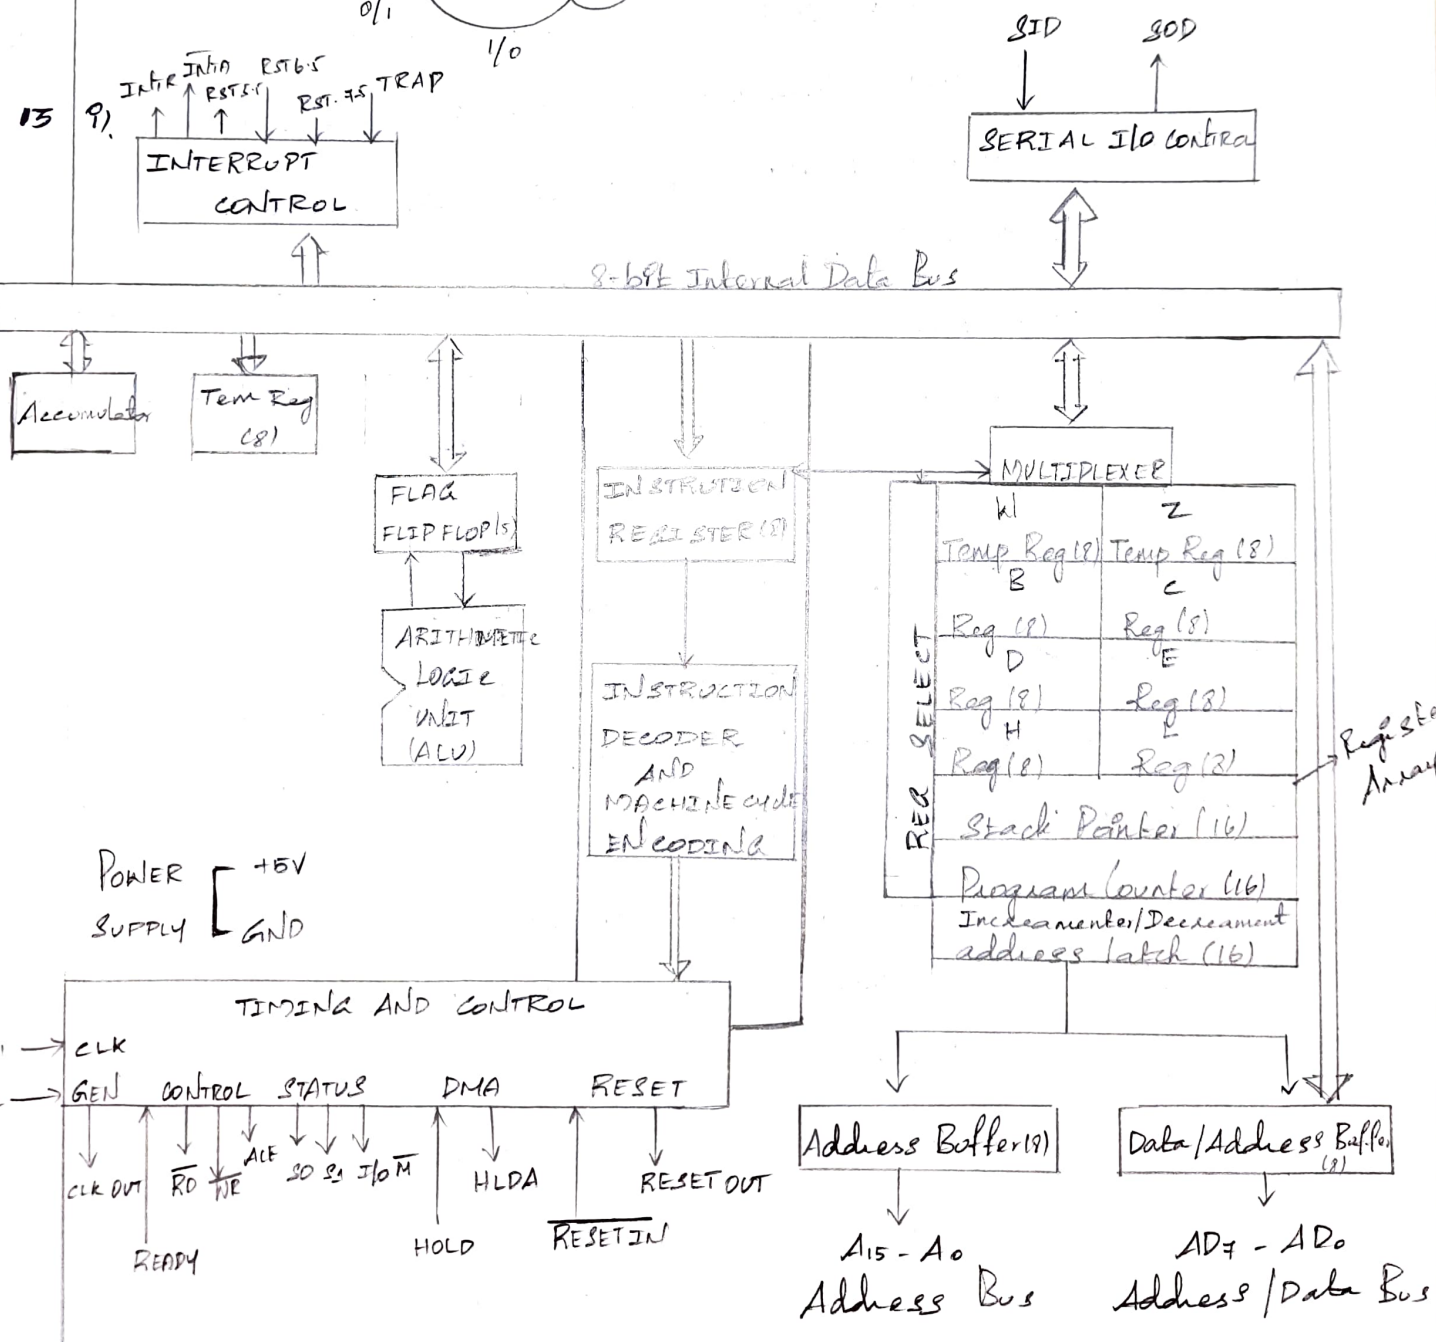 0/1
1/0
13
i).
INTR
INTA
RST5.5
RST6.5
RST.7.5
TRAP
INTERRUPT
CONTROL
SID
SOD
SERIAL I/O CONTROL
8-bit Internal Data Bus
Accumulator
Tem Reg
(8)
FLAG
FLIPFLOP(s)
ARITHMETIC
LOGIC
UNIT
(ALU)
INSTRUTION
REGISTER(8)
INSTRUCTION
DECODER
AND
MACHINE cycle
ENCODING
MULTIPLEXER
REG SELECT
W
Z
Temp Reg (8)
Temp Reg (8)
B
C
Reg (8)
Reg (8)
D
E
Reg (8)
Reg (8)
H
L
Reg (8)
Reg (8)
Stack Pointer (16)
Program Counter (16)
Increamenter/Decreament
address latch (16)
Register
Array
POWER
SUPPLY
+5V
GND
TIMING AND CONTROL
CLK
GEN CONTROL STATUS DMA RESET
CLK OUT
READY
RD
WR
ALE
S0 S1 I/O M
HOLD
HLDA
RESET IN
RESET OUT
Address Buffer(8)
Data/Address Buffer
(8)
A15 - A0
Address Bus
AD7 - AD0
Address/Data Bus